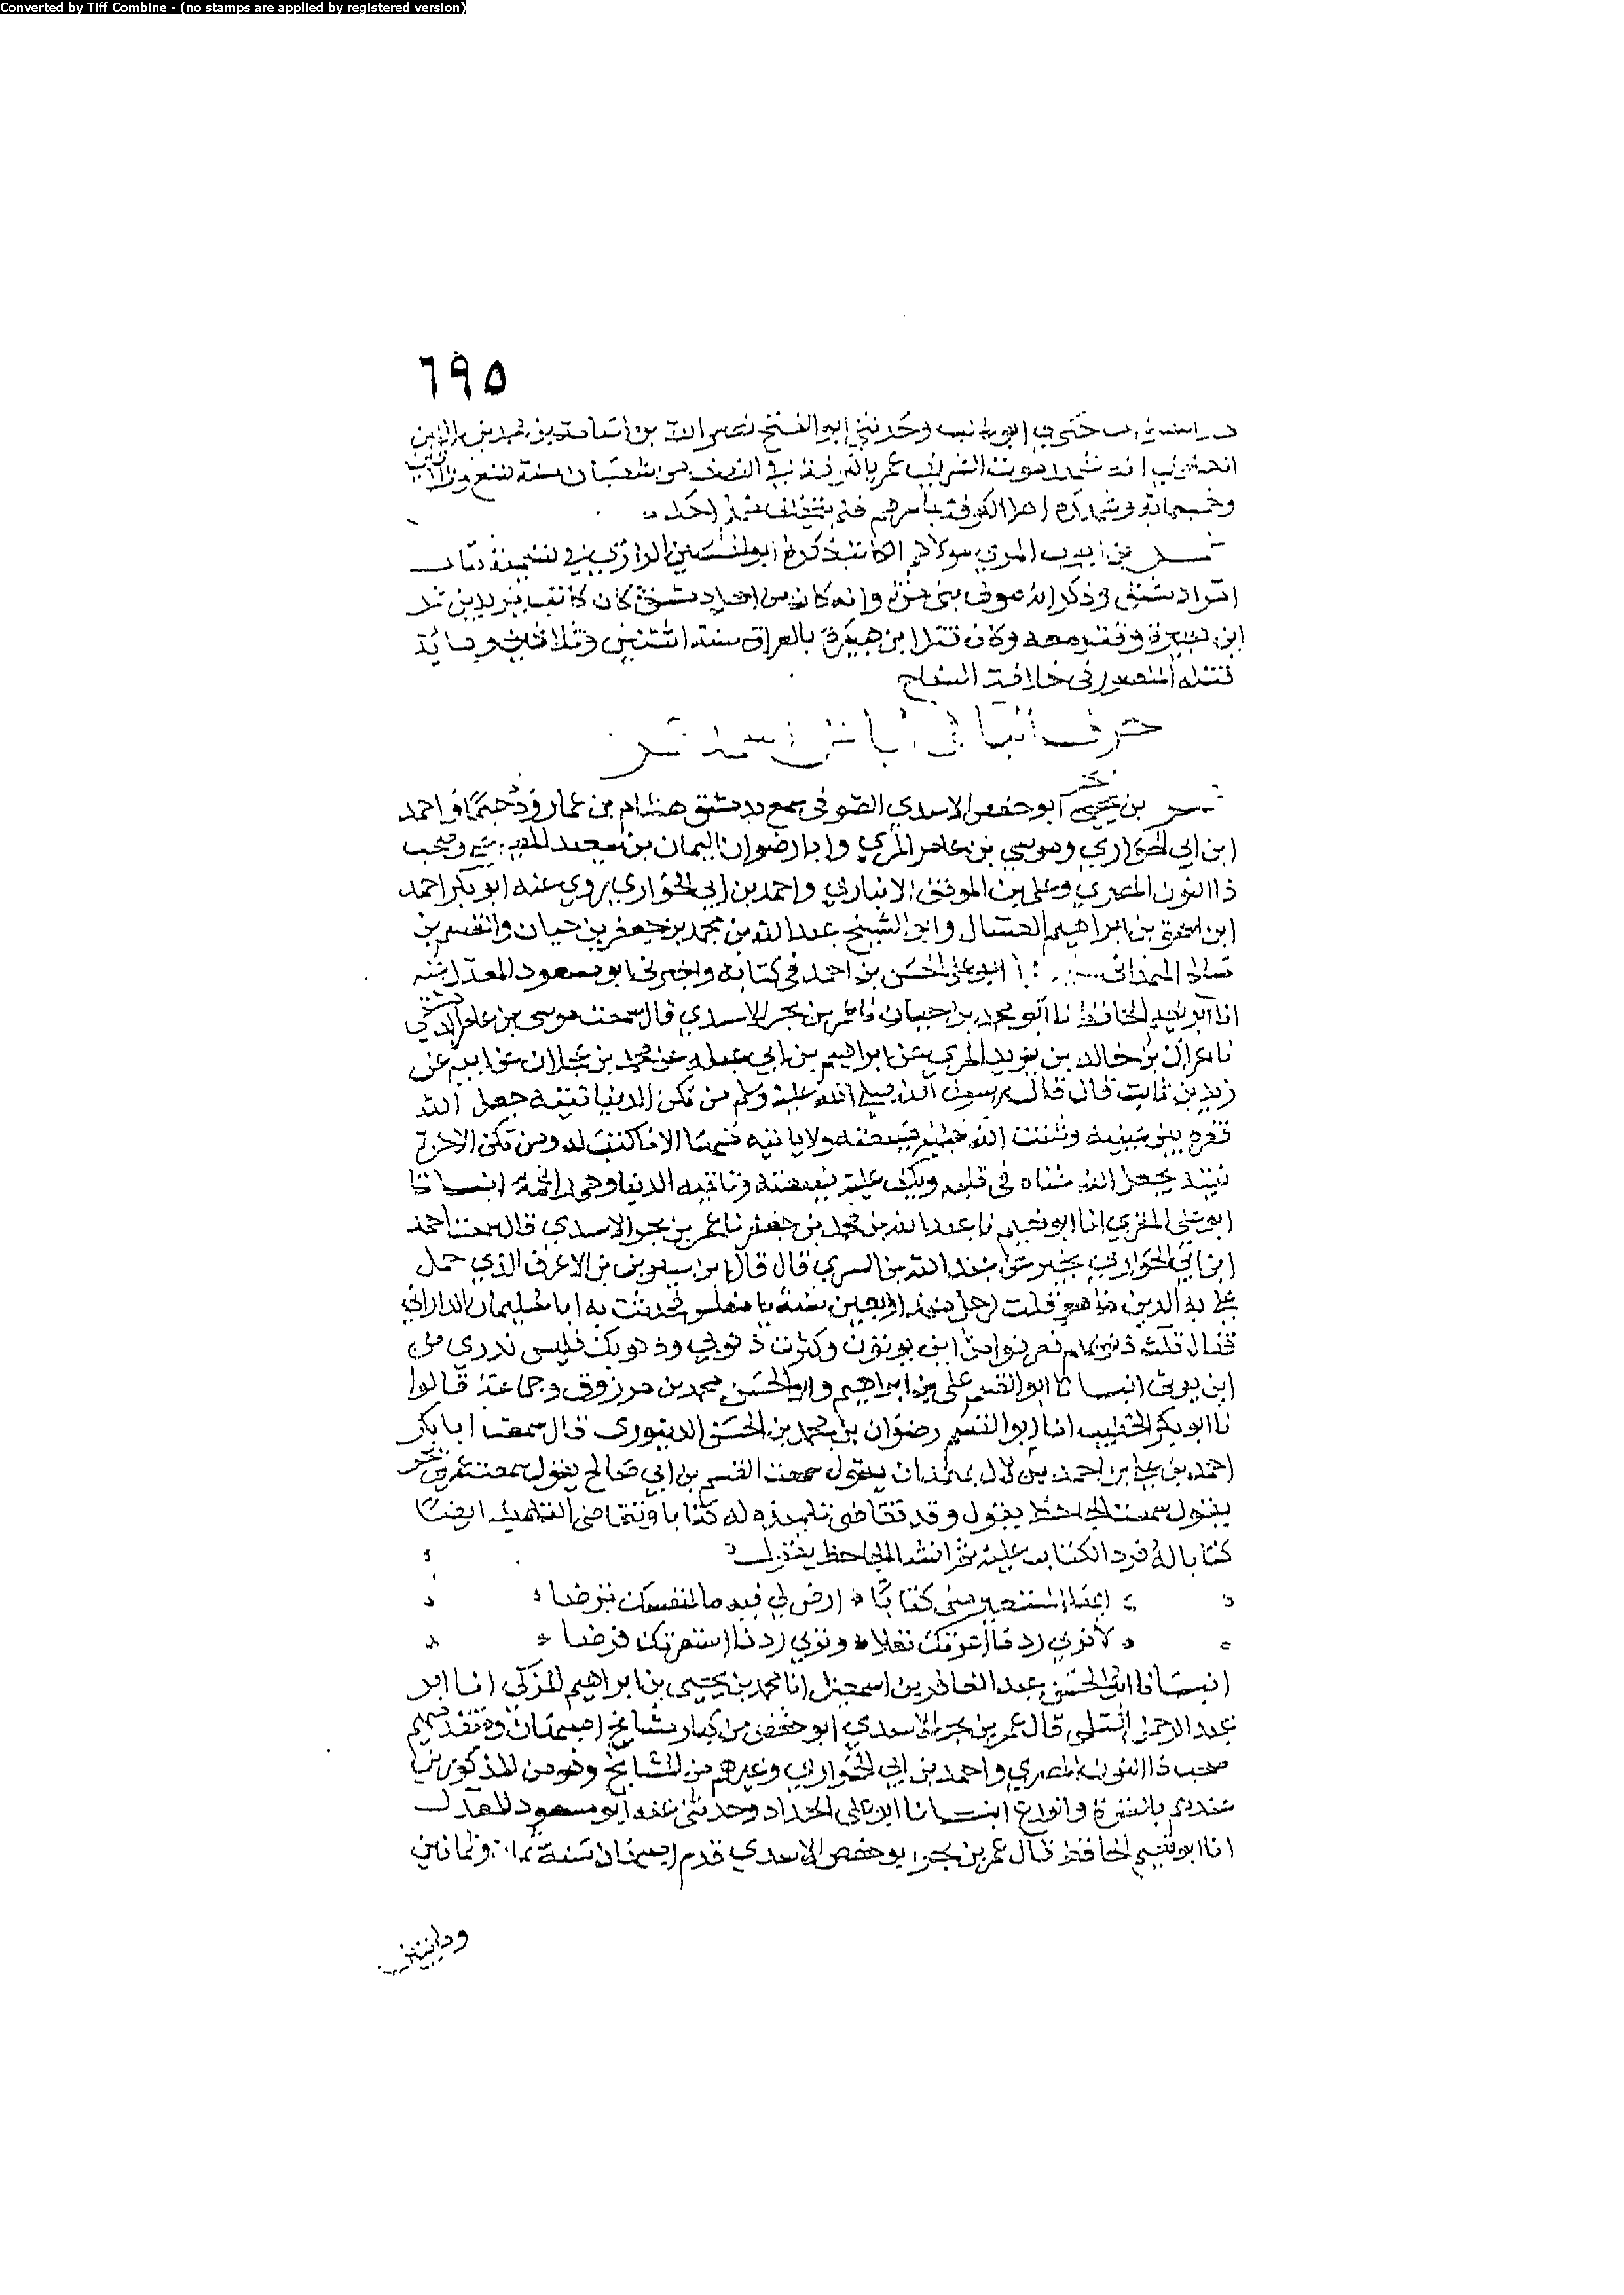 Converted by Tiff Combine - (no stamps are applied by registered version)
٦٩٥
وحدثني ابو الفتح نصر الله بن
الشريف عمر بالكوفة في النصف من شعبان سنة تسع
وخمسمائة اهل الكوفة باسرهم فلم يتخلف احد
عمر بن المري مولاهم الكاتب ذكره ابو الحسين الرازي في تسمية كتاب
امراء دمشق وذكر انه مولى بني مرة وانه كان من اهل دمشق كان كاتب يزيد بن عمر
ابن هبيرة وقتل معه وكان قتل ابن هبيرة بالعراق سنة اثنتين وثلاثين ومائة
قتله المنصور في خلافة السفاح
حرف الباء في اباء من اسمه عمر
عمر بن بحر ابو حفص الاسدي الصوفي سمع بدمشق هشام بن عمار ودحيما واحمد
ابن ابي الحواري وموسى بن عامر المري وابا رضوان اليمان بن سعيد وصحب
ذا النون المصري وعلي بن الموفق الانباري واحمد بن ابي الحواري روى عنه ابو بكر احمد
ابن اسحق بن ابراهيم العسال وابو الشيخ عبد الله بن محمد بن جعفر بن حيان والقسم بن
ابو علي الحسن بن احمد في كتابه واخبرني ابو مسعود المعدل عنه
انا ابو نعيم الحافظ نا ابو محمد بن حيان نا عمر بن بحر الاسدي قال سمعت موسى بن عامر الدمشقي
نا عراك بن خالد بن يزيد المري عن ابراهيم بن ابي عبلة عن محمد بن عجلان عن ابيه عن
زيد بن ثابت قال قال رسول الله صلى الله عليه وسلم من تكن الدنيا نيته جعل الله
فقره بين عينيه وشتت الله عليه ضيعته ولا ياتيه منها الا ما كتب له ومن تكن الاخرة
نيته يجعل الله غناه في قلبه ويكف عليه ضيعته وتاتيه الدنيا وهي راغمة انبسانا
ابو علي المقرئ انا ابو نعيم نا عبد الله بن محمد بن جعفر نا عمر بن بحر الاسدي قال سمعت احمد
ابن ابي الحواري عبد الله بن السري قال قال ابن سيرين اني لاعرف الذي حمل
علي به الدين ما هو قلت لرجل منذ اربعين سنة يا مفلس فحدثت به ابا سليمان الداراني
فقال قلت ذنوبهم فعرفوا من اين يوتون وكثرت ذنوبي وذنوبك فليس ندري من
اين يوتى انبسانا ابو القسم علي بن ابراهيم وابو الحسن محمد بن مرزوق وجماعة قالوا
نا ابو بكر الخطيب انا ابو القسم رضوان بن محمد بن الحسن الدينوري قال سمعت ابا بكر
احمد بن علي بن احمد بن لال بهمذان يقول سمعت القسم بن ابي صالح يقول سمعت عمر بن بحر
يقول سمعت الجاحظ يقول وقد تقاضى تلميذه له كتابا وتقاضى التلميذ ايضا
كتابا له فرد الكتاب عليه ثم انشا الجاحظ يقول
ايها المستعير مني كتابا ارض لي فيه ما لنفسك ترضا
لا ترى رد ما اعرتك نفلا وترى رد ما استعرتك فرضا
انبسانا ابو الحسن عبد الغافر بن اسمعيل انا محمد بن يحيى بن ابراهيم المزكي انا ابو
عبد الرحمن السلمي قال عمر بن بحر الاسدي ابو حفص من كبار مشايخ اصبهان
صحب ذا النون المصري واحمد بن ابي الحواري وغيرهم من المشايخ وهو من المذكورين
عندهم والورع انبسانا ابو علي الحداد وحدثني عنه ابو مسعود المعدل
انا ابو نعيم الحافظ قال عمر بن بحر ابو حفص الاسدي قدم اصبهان سنة ثمان وثمانين
ومايتين